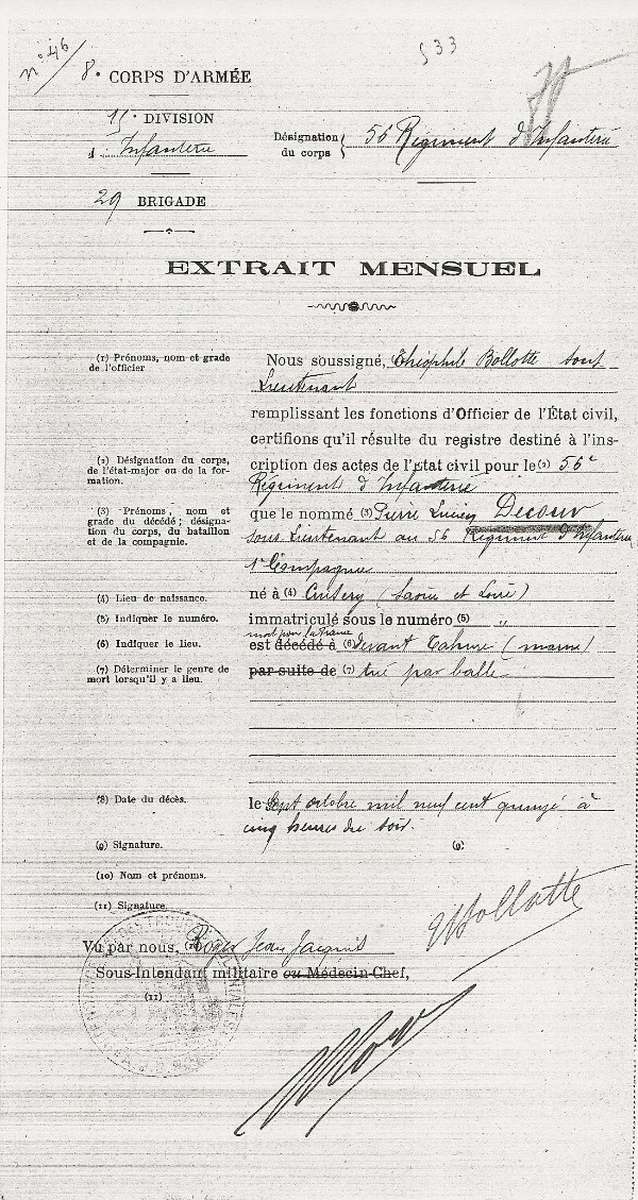 n° 46
533
8e CORPS D'ARMÉE
15e DIVISION
d'Infanterie
Désignation du corps { 56 Régiment d'Infanterie
29 BRIGADE
EXTRAIT MENSUEL
(1) Prénoms, nom et grade
de l'officier
Nous soussigné, Théophile Bollotte sous
Lieutenant
remplissant les fonctions d'Officier de l'État civil,
certifions qu'il résulte du registre destiné à l'ins-
(2) Désignation du corps,
de l'état-major ou de la for-
mation.
cription des actes de l'état civil pour le (2) 56e
Régiment d'Infanterie
(3) Prénoms, nom et
grade du décédé; désigna-
tion du corps, du bataillon
et de la compagnie.
que le nommé (3) Pierre Lucien Decour
sous-Lieutenant au 56 Régiment d'Infanterie
1e Compagnie
(4) Lieu de naissance.
né à (4) Cuisery (Saône et Loire)
(5) Indiquer le numéro.
immatriculé sous le numéro (5) "
mort pour la France
(6) Indiquer le lieu.
est décédé à (6) Devant Tahure (marne)
(7) Déterminer le genre de
mort lorsqu'il y a lieu.
par suite de (7) tué par balle
(8) Date du décès.
le Sept octobre mil neuf cent quinze à
cinq heures du soir.
(9) Signature.
(9)
(10) Nom et prénoms.
(11) Signature.
Bollotte
Vu par nous, (10) Jean Jacques
Sous-Intendant militaire ou Médecin-Chef,
(11)